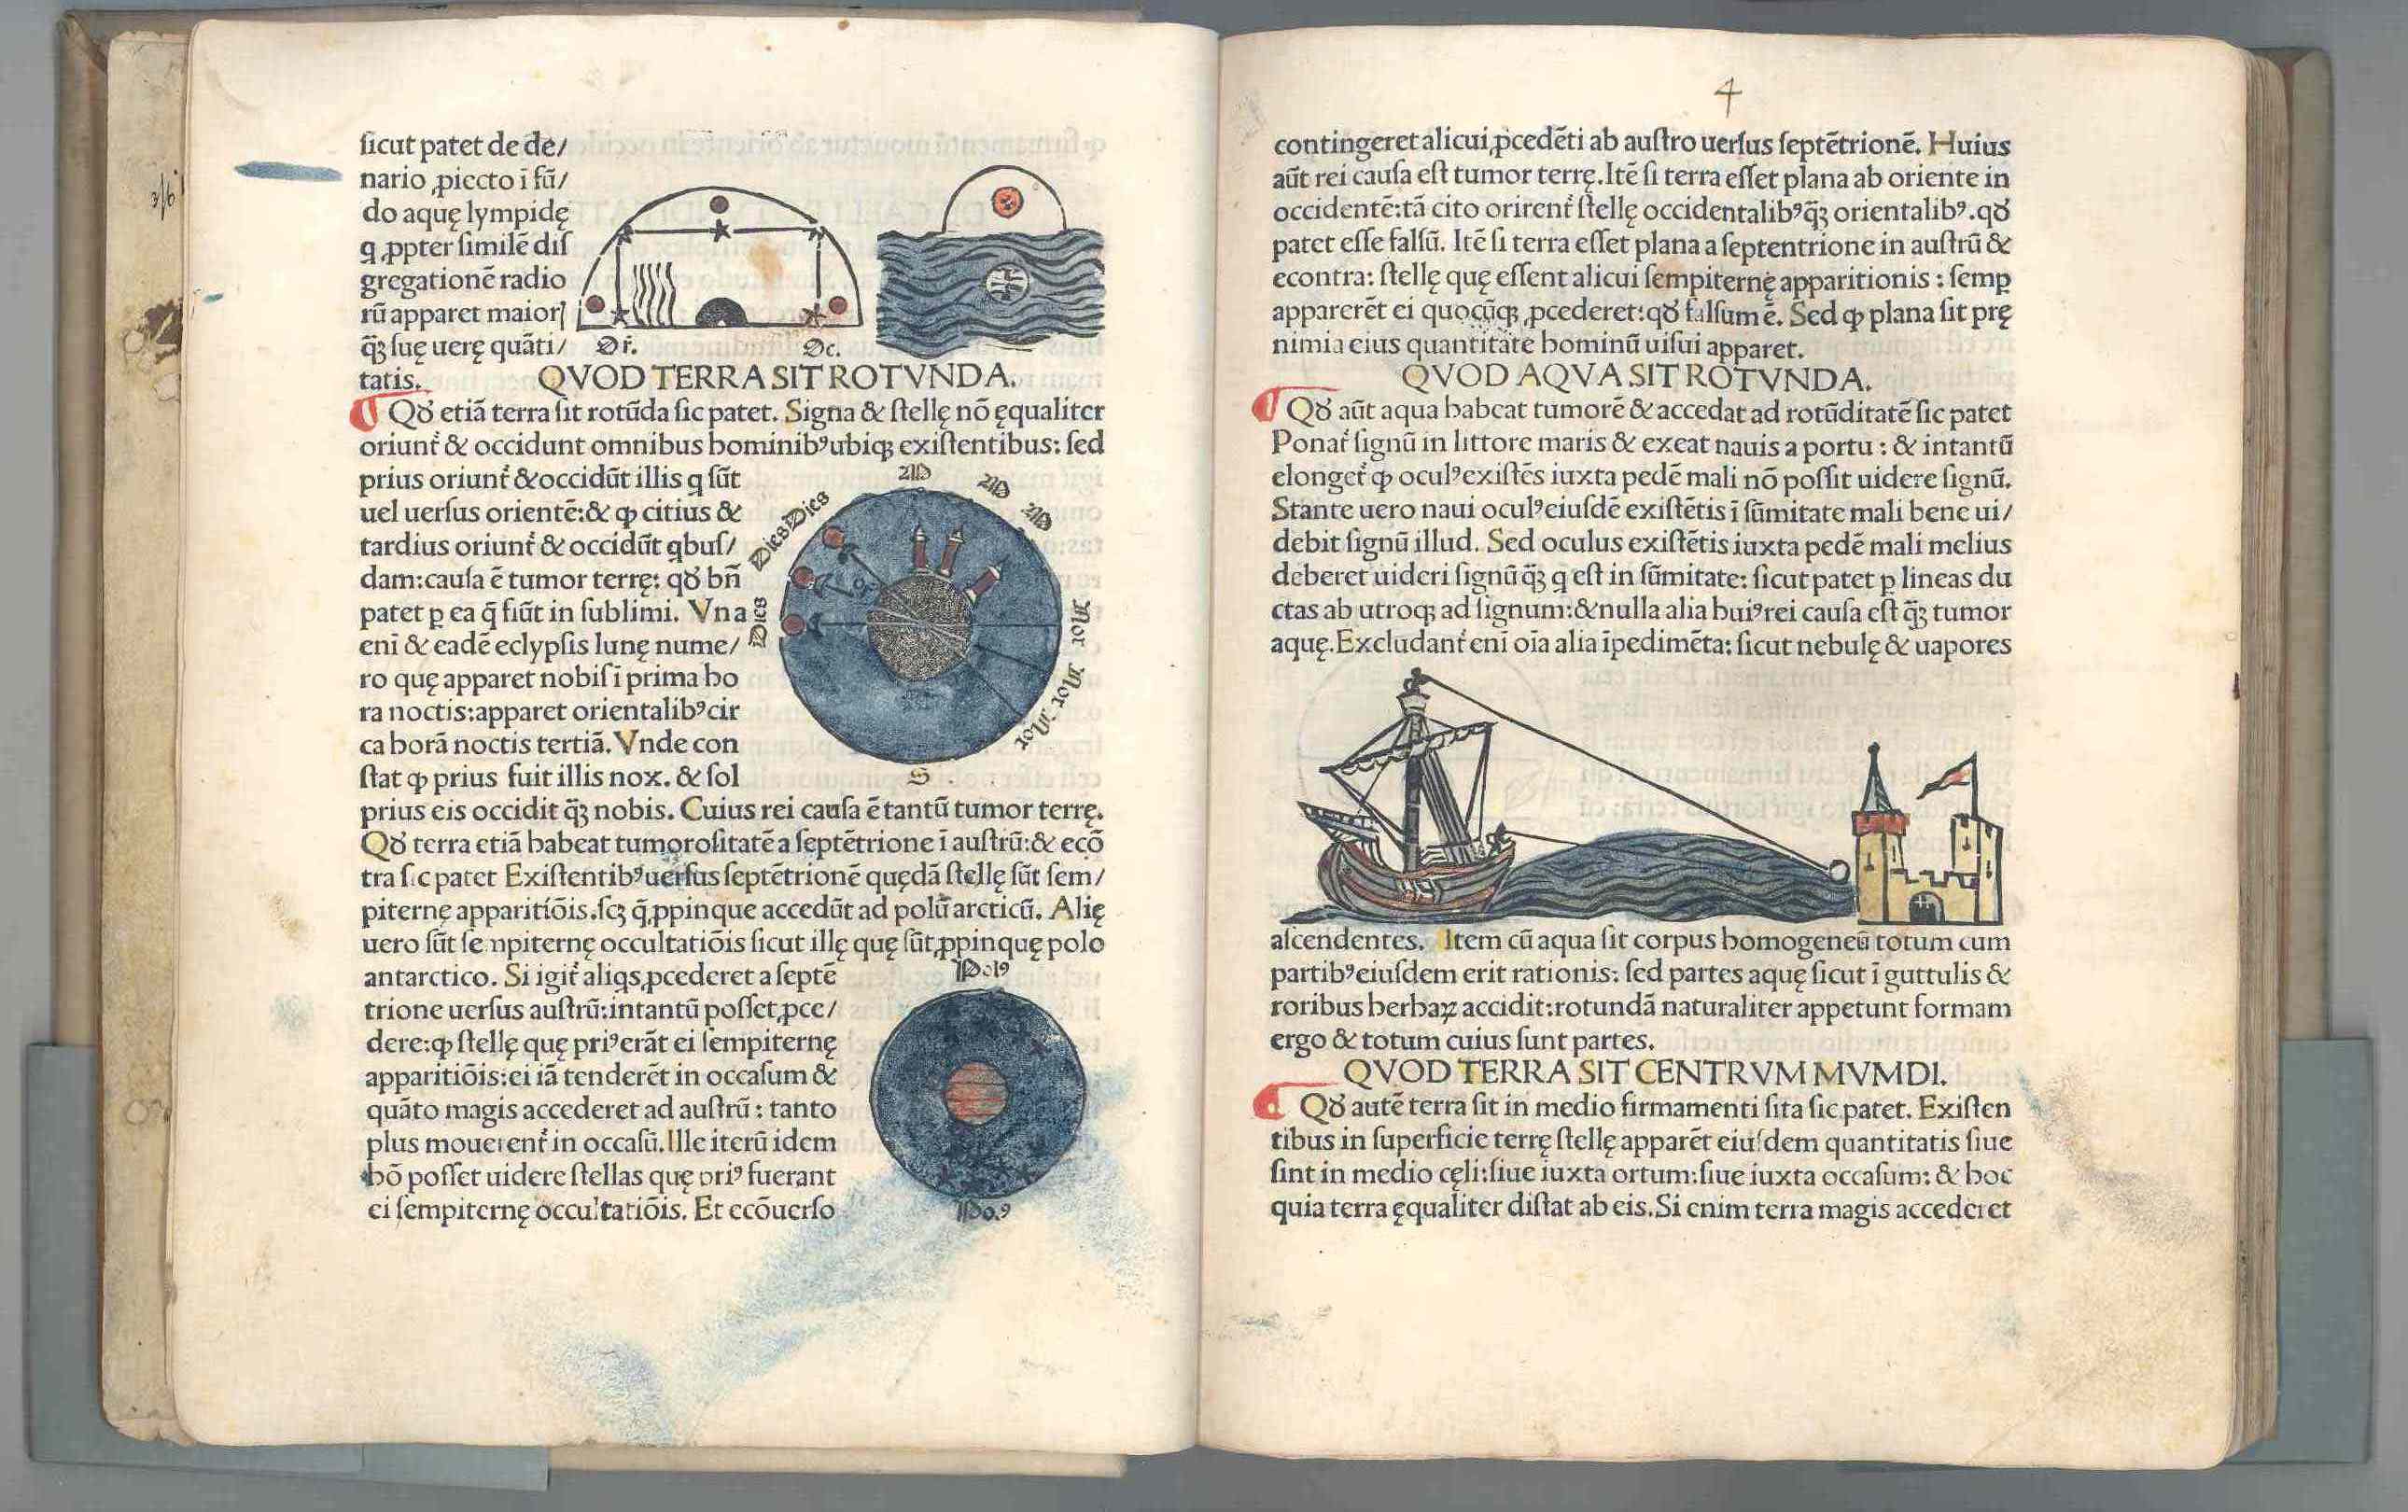 sicut patet de de/
nario ꝓiecto ī fū/
do aquę lympidę
q ꝓpter similē dis
gregationē radio
rū apparet maior
q̄ꝫ suę uerę quāti/
tatis.
Or̄.
Oc.
QVOD TERRA SIT ROTVNDA.
Qd̕ etiā terra sit rotūda sic patet. Signa & stellę nō ęqualiter
oriunt̕ & occidunt omnibus hominibꝰ ubiqꝫ existentibus: sed
prius oriunt̕ & occidūt illis q sūt
uel uersus orientē: & ꝙ citius &
tardius oriunt̕ & occidūt qbus/
dam: causa ē tumor terrę: qd̕ bn̄
patet ꝑ ea q̄ fiūt in sublimi. Vna
eni̅ & eadē eclypsis lunę nume/
ro quę apparet nobis ī prima ho
ra noctis: apparet orientalibꝰ cir
ca horā noctis tertiā. Vnde con
stat ꝙ prius fuit illis nox. & sol
M
M
M
Dies
Dies
Dies
Nox
Nox
Nox
S
prius eis occidit q̄ꝫ nobis. Cuius rei causa ē tantū tumor terrę.
Qd̕ terra etiā habeat tumorositatē a septētrione ī austrū: & ecō
tra sic patet Existentibꝰ uersus septētrionē quędā stellę sūt sem/
piternę apparitiōis. scꝫ q̄ ꝓpinque accedūt ad polū arcticū. Alię
uero sūt sempiternę occultatiōis sicut illę quę sūt ꝓpinquę polo
antarctico. Si igit̕ aliqs ꝓcederet a septē
trione uersus austrū: intantū posset ꝓce/
dere: ꝙ stellę quę priꝰ erāt ei sempiternę
apparitiōis: ei iā tenderēt in occasum &
quāto magis accederet ad austrū: tanto
plus mouerent̕ in occasū. Ille iterū idem
hō posset uidere stellas quę priꝰ fuerant
ei sempiternę occultatiōis. Et ecōuerso
Polꝰ
Po.ꝰ
4
contingeret alicui ꝓcedēti ab austro uersus septētrionē. Huius
aūt rei causa est tumor terrę. Itē si terra esset plana ab oriente in
occidentē: tā cito orirent̕ stellę occidentalibꝰ q̄ꝫ orientalibꝰ. qd̕
patet esse falsū. Itē si terra esset plana a septentrione in austrū &
econtra: stellę quę essent alicui sempiternę apparitionis: semꝑ
apparerēt ei quocūqꝫ ꝓcederet: qd̕ falsum ē. Sed ꝙ plana sit prę
nimia eius quantitate hominū uisui apparet.
QVOD AQVA SIT ROTVNDA.
Qd̕ aūt aqua habeat tumorē & accedat ad rotūditatē sic patet
Ponat̕ signū in littore maris & exeat nauis a portu: & intantū
elonget̕ ꝙ oculꝰ existēs iuxta pedē mali nō possit uidere signū.
Stante uero naui oculꝰ eiusdē existētis ī sūmitate mali bene ui/
debit signū illud. Sed oculus existētis iuxta pedē mali melius
deberet uideri signū q̄ꝫ q est in sūmitate: sicut patet ꝑ lineas du
ctas ab utroqꝫ ad signum: & nulla alia huiꝰ rei causa est q̄ꝫ tumor
aquę. Excludant̕ eni̅ oīa alia īpedimēta: sicut nebulę & uapores
ascendentes. Item cū aqua sit corpus homogeneū totum cum
partibꝰ eiusdem erit rationis: sed partes aquę sicut ī guttulis &
roribus herbaꝝ accidit: rotundā naturaliter appetunt formam
ergo & totum cuius sunt partes.
QVOD TERRA SIT CENTRVM MVMDI.
Qd̕ autē terra sit in medio firmamenti sita sic patet. Existen
tibus in superficie terrę stellę apparēt eiusdem quantitatis siue
sint in medio cęli: siue iuxta ortum: siue iuxta occasum: & hoc
quia terra ęqualiter distat ab eis. Si enim terra magis accederet